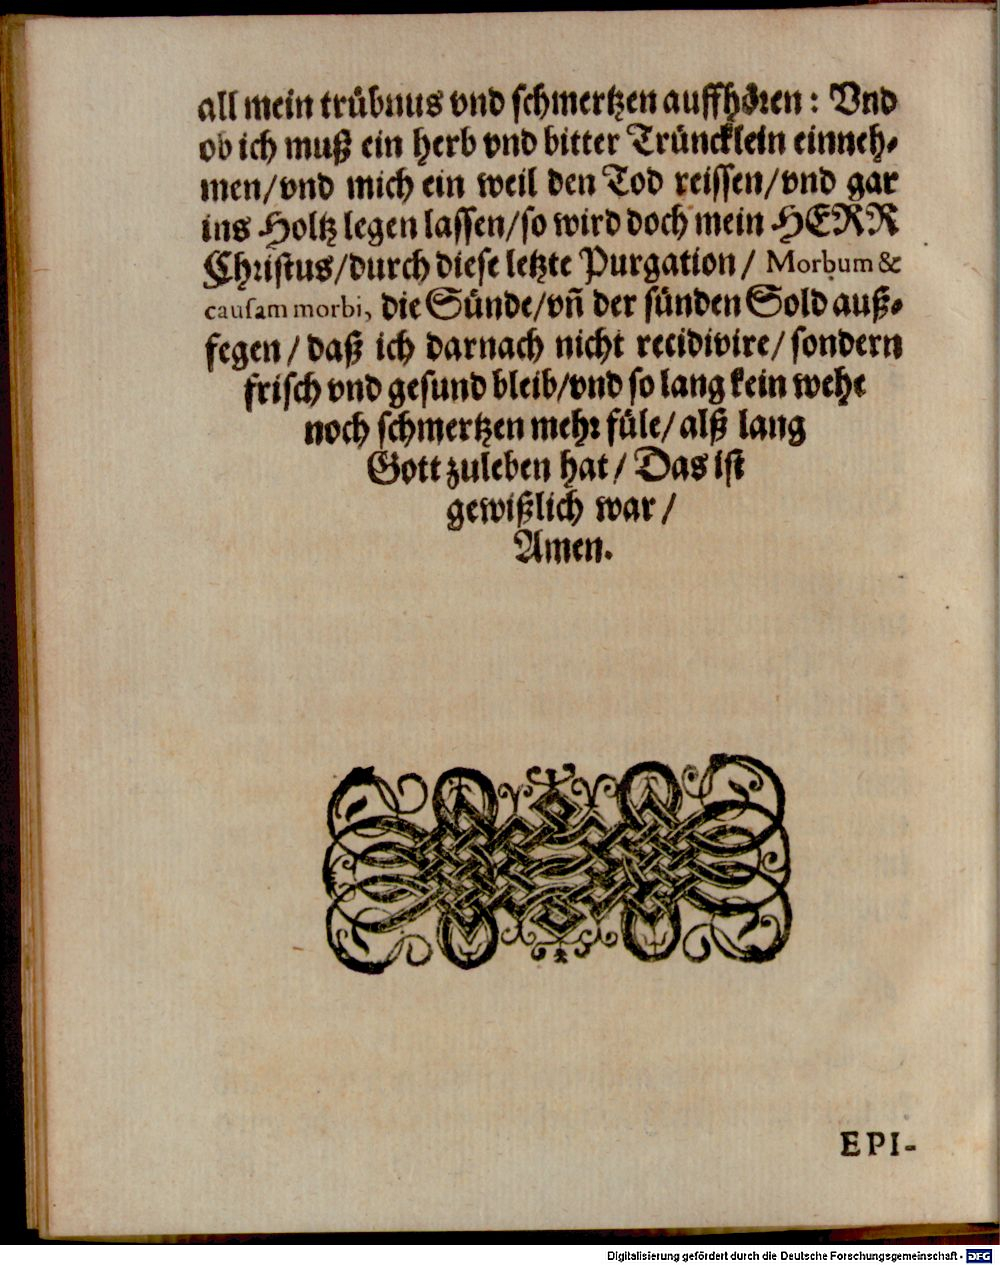 all mein trübnus vnd schmertzen auffhören: Vnd
ob ich muß ein herb vnd bitter Trüncklein einneh-
men/vnd mich ein weil den Tod reissen/vnd gar
ins Holtz legen lassen/so wird doch mein HERR
Christus/durch diese letzte Purgation/ Morbum &
causam morbi, die Sünde/vñ der sünden Sold auß-
fegen/ daß ich darnach nicht recidivire/ sondern
frisch vnd gesund bleib/vnd so lang kein wehe
noch schmertzen mehr füle/ alß lang
Gott zuleben hat/ Das ist
gewißlich war/
Amen.
EPI-
Digitalisierung gefördert durch die Deutsche Forschungsgemeinschaft - DFG